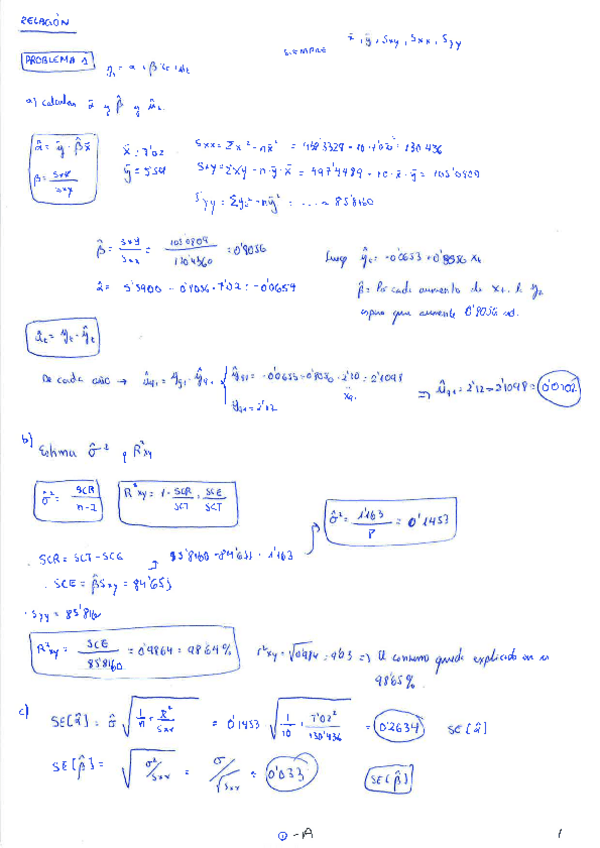 RELACIÓN
SIEMPRE x̄, ȳ, Sxy, Sxx, Syy
PROBLEMA 1
a) calcular α̂ y β̂ y û_t.
α̂ = ȳ - β̂x̄
x̄: 7'02
Sxx = Σx² - nx̄² =
- 10 · 7'02² = 130'436
β̂ = Sxy/Sxx
ȳ = 5'59
Sxy = Σxy - n·ȳ·x̄ = 497'4489 - 10·x̄·ȳ = 105'0809
Syy = Σy² - nȳ² = ... = 85'8160
β̂ = Sxy/Sxx = 105'0809/130'4360 = 0'8056
Luego ŷ_t = -0'0653 + 0'8056 x_t
α̂ = 5'5900 - 0'8056 · 7'02 = -0'0654
β̂ = Por cada aumento de x_t, la y_t
espera que aumente 0'8056 ud.
û_t = y_t - ŷ_t
De cada año → û91 = y91 - ŷ91
ŷ91 = -0'0653 + 0'8056 · 2'70 = 2'1098
x91
y91 = 2'12
⇒ û91 = 2'12 - 2'1098 = 0'0102
b) Estima σ̂² y R²xy
σ̂² = SCR/n-2
R²xy = 1 - SCR/SCT = SCE/SCT
σ̂² = 1'163/8 = 0'1453
· SCR = SCT - SCE
85'8160 - 84'653 = 1'163
· SCE = β̂Sxy = 84'653
· Syy = 85'816
R²xy = SCE/85'8160 = 0'9864 = 98'64%
⇒ El consumo queda explicado en un
98'65%.
c)
SE[α̂] = σ̂ √(1/n + x̄²/Sxx) = 0'1453 √(1/10 + 7'02²/130'436) = 0'2634 SE[α̂]
SE[β̂] = √(σ²/Sxx) = σ/√Sxx = 0'033
SE[β̂]
① - A
1